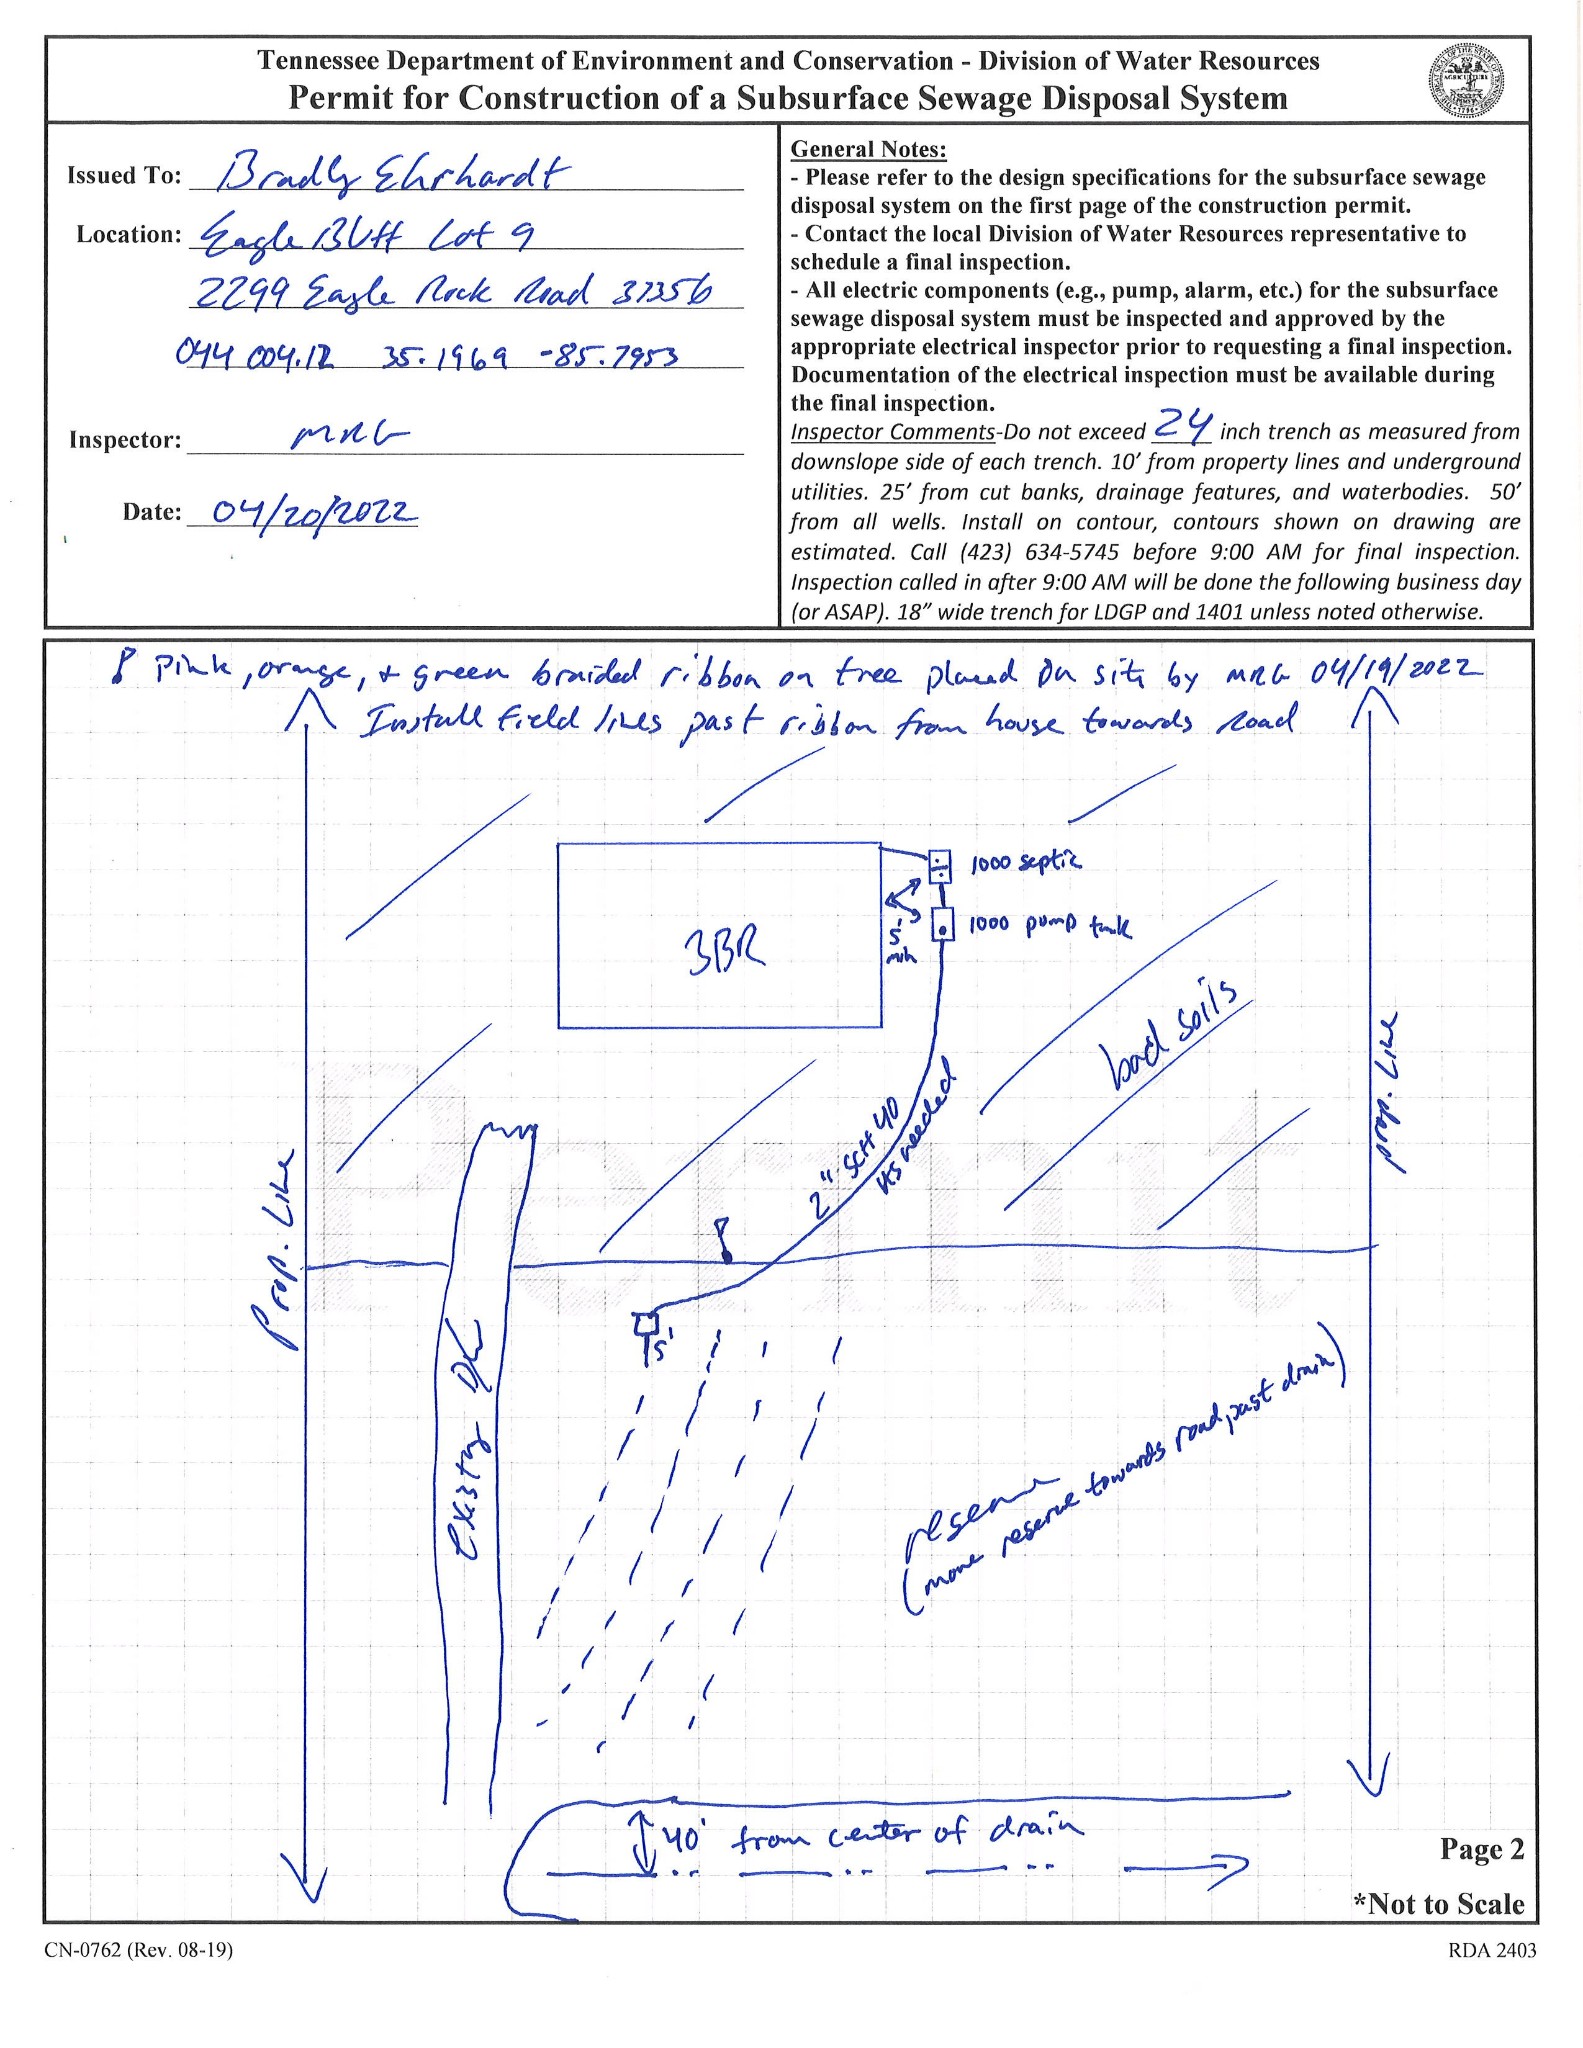 Tennessee Department of Environment and Conservation - Division of Water Resources
Permit for Construction of a Subsurface Sewage Disposal System
Issued To: Bradly Ehrhardt
Location: Eagle Bluff Lot 9
2299 Eagle Rock Road 37356
044 004.12 35.1969 -85.7953
Inspector: MRG
Date: 04/20/2022
General Notes:
- Please refer to the design specifications for the subsurface sewage
disposal system on the first page of the construction permit.
- Contact the local Division of Water Resources representative to
schedule a final inspection.
- All electric components (e.g., pump, alarm, etc.) for the subsurface
sewage disposal system must be inspected and approved by the
appropriate electrical inspector prior to requesting a final inspection.
Documentation of the electrical inspection must be available during
the final inspection.
Inspector Comments-Do not exceed 24 inch trench as measured from
downslope side of each trench. 10' from property lines and underground
utilities. 25' from cut banks, drainage features, and waterbodies. 50'
from all wells. Install on contour, contours shown on drawing are
estimated. Call (423) 634-5745 before 9:00 AM for final inspection.
Inspection called in after 9:00 AM will be done the following business day
(or ASAP). 18" wide trench for LDGP and 1401 unless noted otherwise.
Pink, orange, + green braided ribbon on tree placed on site by MRG 04/19/2022
Install field lines past ribbon from house towards road
1000 septic
1000 pump tank
5'
min
3BR
bad soils
Prop. Line
Prop. Line
2" SCH 40
as needed
Permit
5'
existing D/W
reserve
(more reserve towards road, past drain)
40' from center of drain
Page 2
*Not to Scale
CN-0762 (Rev. 08-19)
RDA 2403